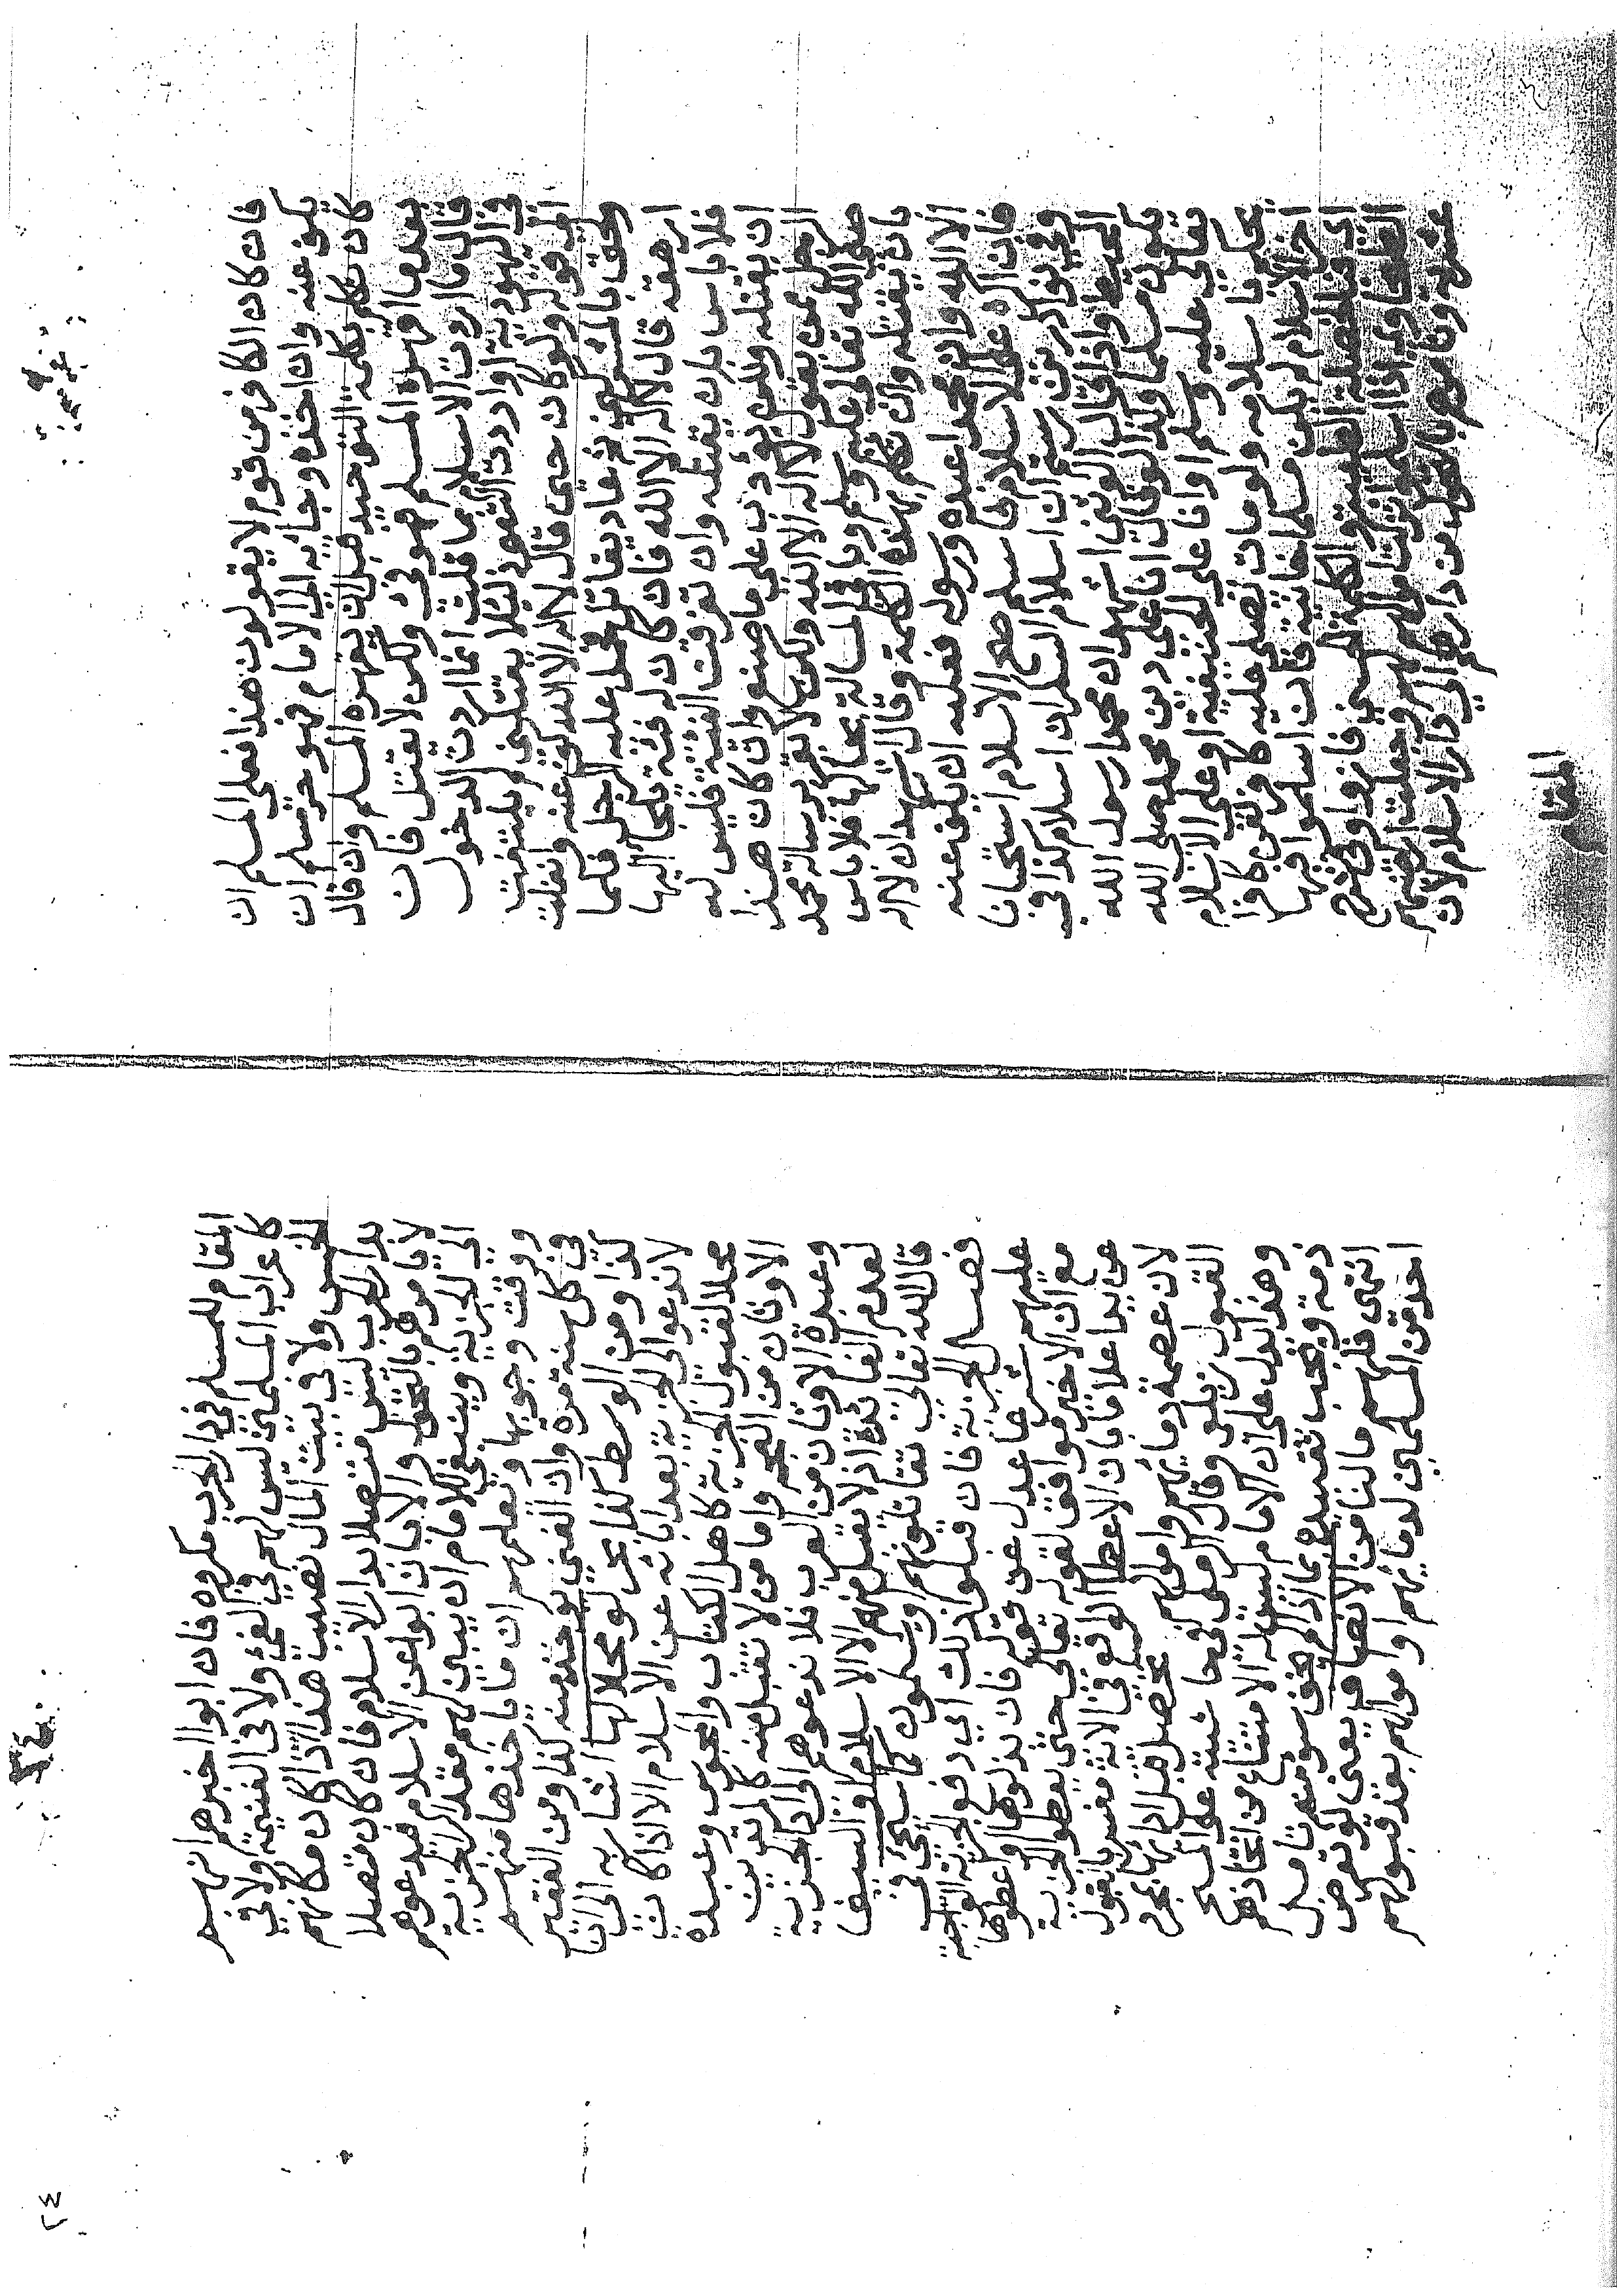 فان كان الكافر من قوم لا يقولون هذا فعلى المسلم ان
يكف عنه وان اخذه وجاء به الى الامام فهو حر مسلم ان
كان تكلم بكلمة التوحيد قبل ان يقهره المسلم وان قال
بعد ما قهره المسلم فهو فيء ولكن لا يقتل فان
قال ما اردت الاسلام بما قلت انما اردت الدخول
في اليهودية او اردت التعوذ لئلا يقتلني لم يلتفت
الى قوله ولو كان حين قال لا اله الا الله كف عنه وانفلت
ولحق بالمشركين ثم عاد يقاتل فحمل عليه الرجل فلما
ارهقه قال لا اله الا الله فان كان له فئة يلجأ اليها
فلا باس بان يقتله وان تفرقت الفئة فليس له
ان يقتله ولكن يؤدب على ما صنع وان كان هذا
الرجل ممن يقول لا اله الا الله ولكن لا يقر برسالة محمد
صلى الله تعالى عليه وسلم وباقي المسالة بحالها فلا باس
بان يقتله وان تكلم بهذه الكلمة وقال اشهد ان لا اله
الا الله وان محمدا عبده ورسوله فعليه ان يكف عنه
فان اكره على الاسلام فاسلم صح الاسلام استحسانا
وفي نوادر ابن رستم ان اسلام السكران اسلام كذا في
المحيط واذا قال الوثني اشهد ان محمدا رسول الله
يكون مسلما وكذا لو قال انا على دين محمد صلى الله
تعالى عليه وسلم او انا على الحنيفية او على الاسلام
يحكم باسلامه ولو مات يصلى عليه كافر لقن كافرا
اخر الاسلام لم يكن مسلما خانية فان اسلموا فبها
اي فبالخصلة الكلمة الحسنى فازوا وفي شرح
الطحاوي اذا اسلموا تركت اموالهم وجعلت اراضيهم
عشرية وتامرهم بالتحول من دارهم الى دار الاسلام لان
المقام
المقام للمسلم في دار الحرب مكروه فان ابوا اخبرهم انهم
كاعراب المسلمين ليس لهم في الفيء ولا في الغنيمة ولا في
الخمس ولا في بيت المال نصيب هذا اذا كان مكانهم
بدار الحرب ليس متصلا بدار الاسلام فان كان متصلا
لا يامرهم بالتحول والا بان ابوا عن الاسلام فيدعوهم
الى الجزية وينبغي للامام ان يبين لهم مقدار الجزية
ووقت وجوبها ويعلمهم ان ما ياخذها منهم
في كل سنة مرة وان الغني يوخذ منه كذا ومن الفقير
كذا ومن الوسط كذا بحر لو محلا لها اشار به الى ان
لا ندعو الى الجزية بعد ابائه عن الاسلام الا اذا كان
محلا لقبول الجزية كاهل الكتاب والمجوس وعبدة
الاوثان من العجم واما من لا تقبل منه كالمرتدين
وعبدة الاوثان من العرب فلا ندعوهم الى اداء الجزية
لعدم الفائدة اذ لا يقبل منهم الا الاسلام او السيف
قال الله تعالى تقاتلونهم او يسلمون كما سيجئ في
فصل الجزية فان قبلوا ذلك اي دفع الجزية
عليهم شرعا عدل عن قولهم فان بذلوها واعطوها
مع ان الاخير موافق لقوله تعالى حتى يعطوا الجزية
عن يد اعلاما بان الاعطاء الواقع في الاية مفسر بالقبول
لان عصمة دمائهم واموالهم تحصل قبل ادائها بمجرد
القبول زيلعي وقال الحموي في حاشيته على المسكين
وهذا يدل على ان الامام ليس له الامتناع من اتخاذهم
ذمة ويجب تقييده بما اذا لم يخف سؤ منعتنا قبل
انتهى فلهم ما لنا من الانصاف يعني لو تعرض
احد من المسلمين لدمائهم واموالهم بعد قبولهم
٢٣